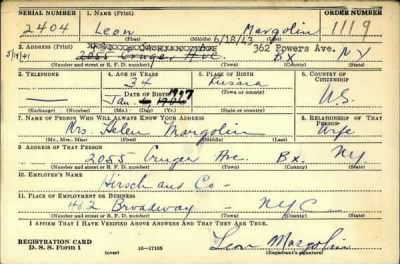 SERIAL NUMBER 1. NAME (Print) ORDER NUMBER
2404 Leon Margolin 1119
(First) (Middle) 6/18/43 (Last)
2. ADDRESS (Print) 362 Powers Ave.
5/14/41 2055 Cruger Ave. BX NY
(Number and street or R. F. D. number) (Town) (County) (State)
3. TELEPHONE 4. AGE IN YEARS 5. PLACE OF BIRTH 6. COUNTRY OF CITIZENSHIP
34 Russia
DATE OF BIRTH (Town or county) U.S.
Jan. 1907
(Exchange) (Number) (Mo.) (Day) (Yr.) (State or country)
7. NAME OF PERSON WHO WILL ALWAYS KNOW YOUR ADDRESS 8. RELATIONSHIP OF THAT PERSON
Mrs. Helen Margolin Wife
(Mr., Mrs., Miss) (First) (Middle) (Last)
9. ADDRESS OF THAT PERSON
2055 Cruger Ave. Bx. NY
(Number and street or R. F. D. number) (Town) (County) (State)
10. EMPLOYER'S NAME
Hirsch and Co -
11. PLACE OF EMPLOYMENT OR BUSINESS
462 Broadway - NYC
(Number and street or R. F. D. number) (Town) (County) (State)
I AFFIRM THAT I HAVE VERIFIED ABOVE ANSWERS AND THAT THEY ARE TRUE.
REGISTRATION CARD
D. S. S. Form 1 16-17105 Leon Margolin
(over) (Registrant's signature)